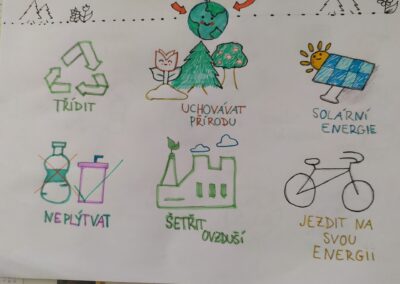 TŘÍDIT
UCHOVÁVAT
PŘÍRODU
SOLÁRNÍ
ENERGIE
NEPLÝTVAT
ŠETŘIT
OVZDUŠÍ
JEZDIT NA
SVOU
ENERGII